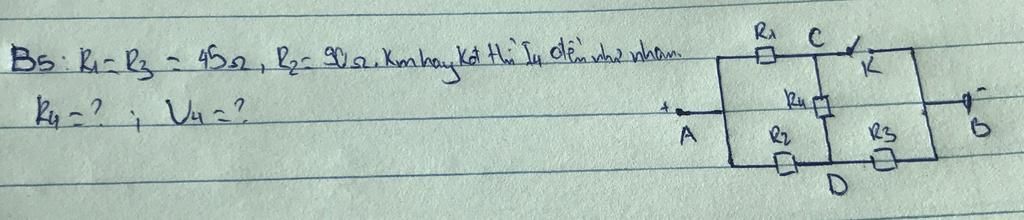 B5: R1 = R3 = 45Ω, R2 = 90Ω. K mở hay K đ thì I4 đều như nhau.
R4 = ? ; U4 = ?
R1 C
K
+ R4 -
A B
R2 R3
D